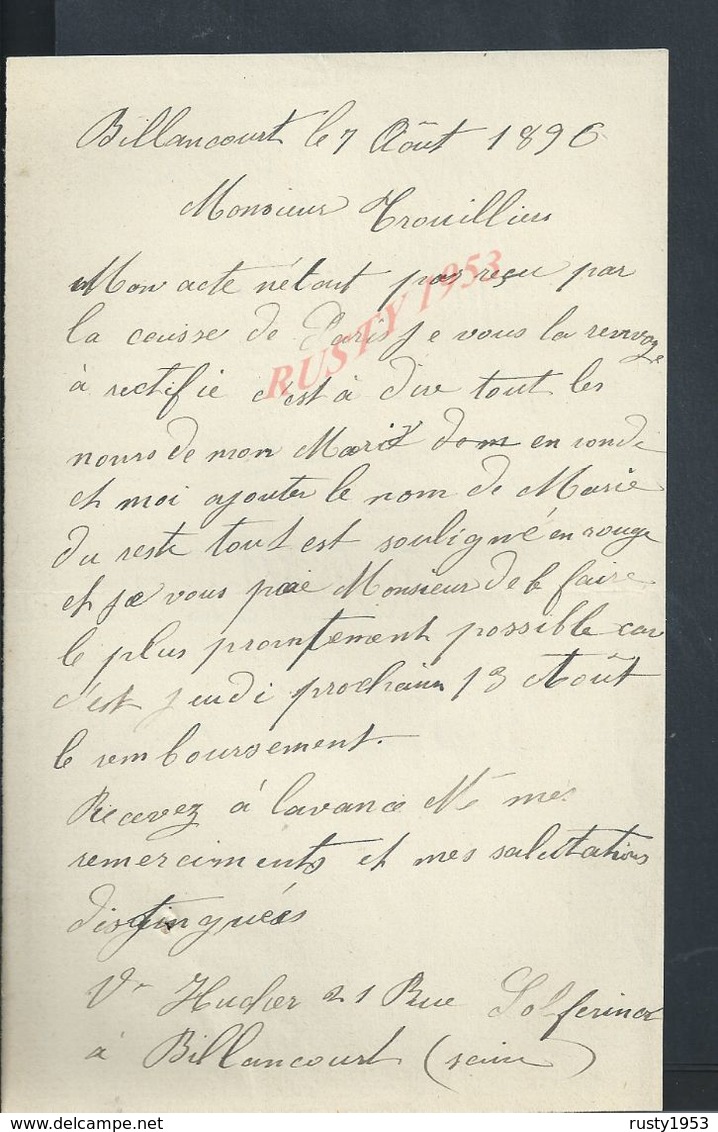 Billancourt le 7 Août 1896
Monsieur Trouillier
Mon acte n'étant pas reçu par
la caisse de Paris je vous la renvoye
à rectifié c'est à dire tout les
noms de mon Mari en ronde
et moi ajouter le nom de Marie
du reste tout est souligné en rouge
et je vous prie Monsieur de le faire
le plus promtement possible car
c'est jeudi prochain 13 Août
le remboursement.
Recevez à lavance Mr mes
remerciments et mes salutations
distinguées
Vve 21 Rue Solferino
à Billancourt (seine)
RUSTY 1953
rusty1953